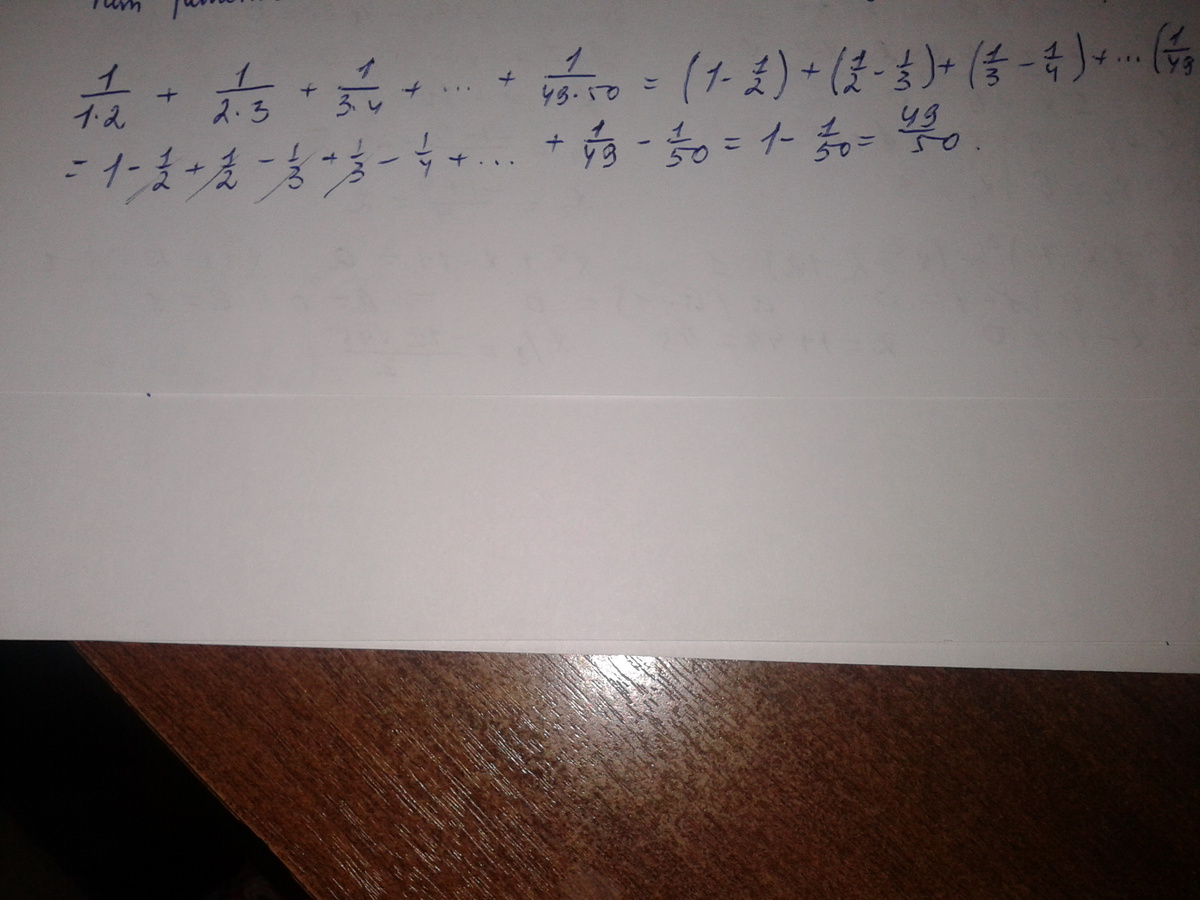 1/(1·2) + 1/(2·3) + 1/(3·4) + ... + 1/(49·50) = (1 - 1/2) + (1/2 - 1/3) + (1/3 - 1/4) + ... (1/49
= 1 - 1/2 + 1/2 - 1/3 + 1/3 - 1/4 + ... + 1/49 - 1/50 = 1 - 1/50 = 49/50.